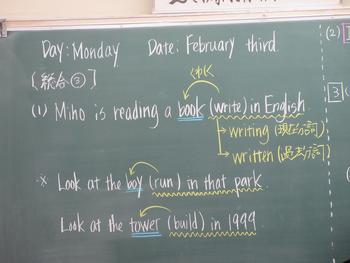 Day: Monday Date: February third (2)
[統合③]
くわしく 3
(1) Miho is reading a book (write) in English.
writing (現在分詞)
written (過去分詞)
※ Look at the boy (run) in that park.
Look at the tower (build) in 1999.